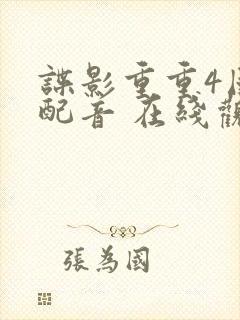 諜影重重4
配音 在綫觀
張為國